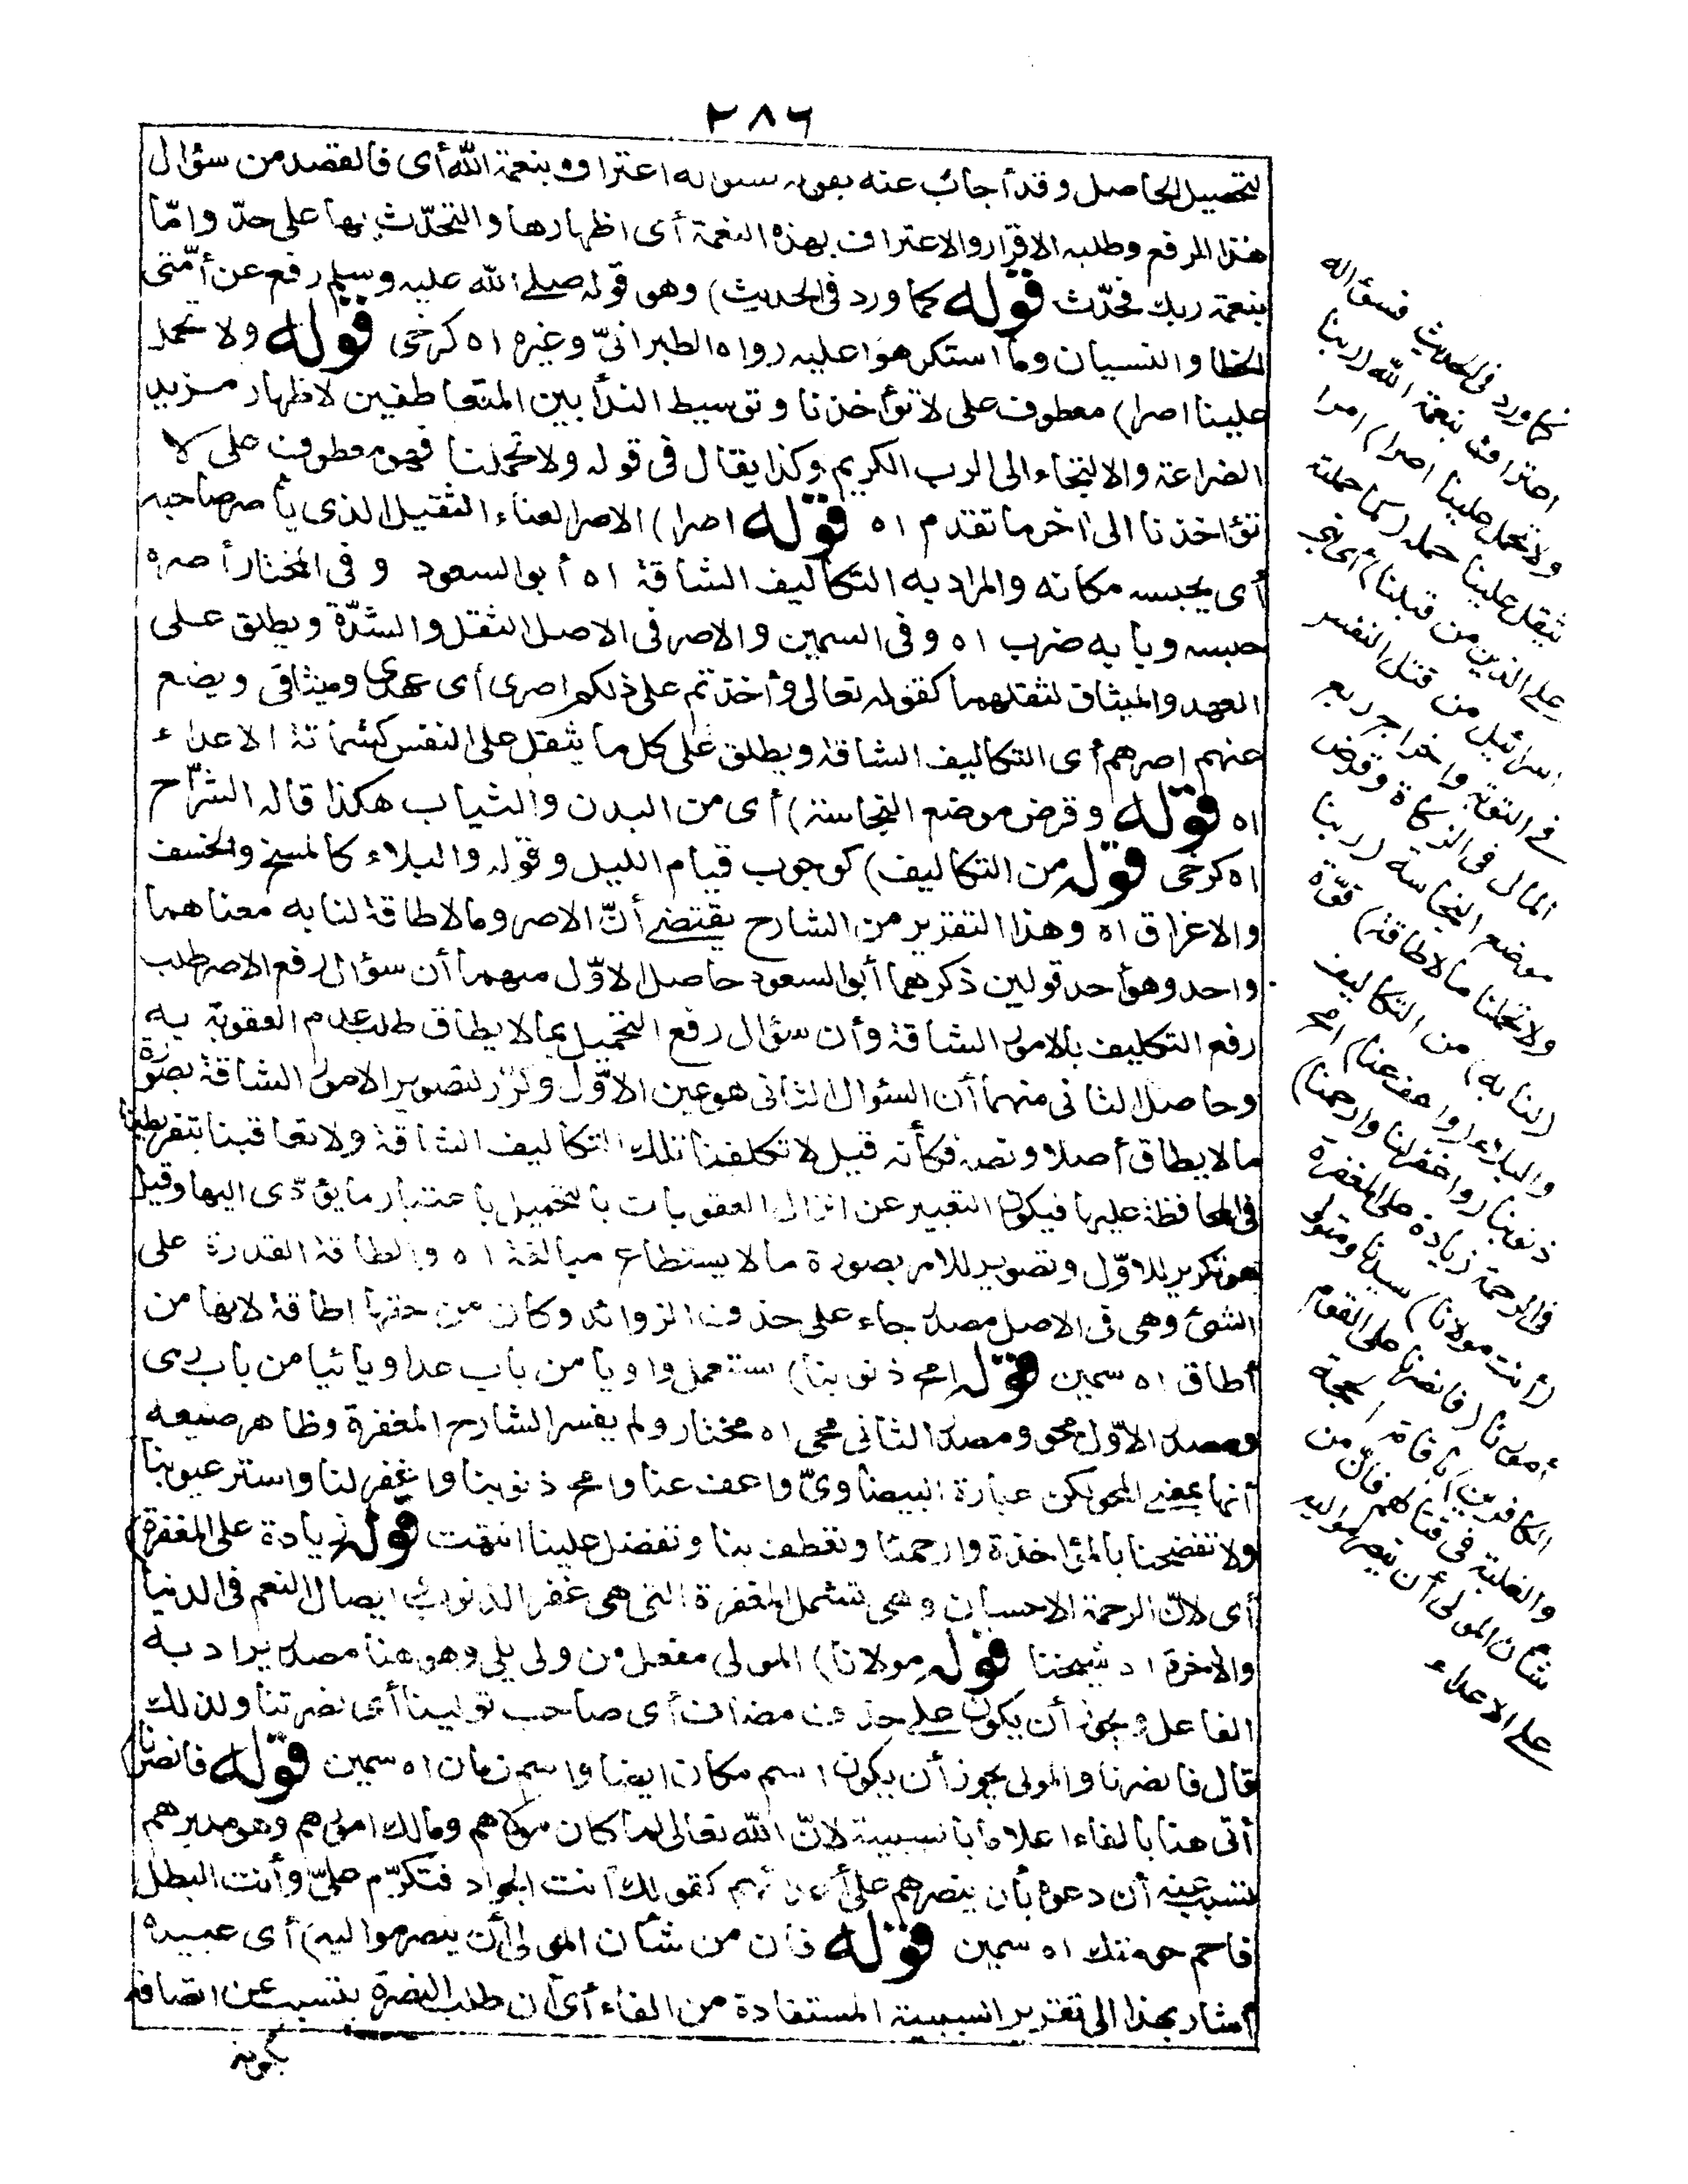 ٢٨٦
لتحصيل الحاصل وقد أجاب عنه بقوله سؤاله اعتراف بنعمة الله أى فالقصد من سؤال
هذا الرفع وطلبه الاقرار والاعتراف بهذه النعمة أى اظهارها والتحدّث بها على حدّ وامّا
بنعمة ربك فحدّث قوله كما ورد فى الحديث) وهو قوله صلى الله عليه وسلم رفع عن أمّتى
الخطا والنسيان وما استكرهوا عليه رواه الطبرانىّ وغيره اه كرخى قوله ولا تحمل
علينا اصرا) معطوف على لا تؤاخذنا وتوسيط الندأ بين المتعاطفين لاظهار مزيد
الضراعة والالتجاء الى الرب الكريم وكذا يقال فى قوله ولا تحملنا فهو معطوف على لا
تؤاخذنا الى اخر ما تقدم اه قوله اصرا) الاصر العناء الثقيل الذى يأصر صاحبه
أى يحبسه مكانه والمراد به التكاليف الشاقة اه أبو السعود وفى المختار أصره
حبسه وبابه ضرب اه وفى السمين والاصر فى الاصل الثقل والشدّة ويطلق على
العهد والميثاق لثقلهما كقوله تعالى وأخذتم على ذلكم اصرى أى عهدى وميثاقى ويضع
عنهم اصرهم أى التكاليف الشاقة ويطلق على كل ما يثقل على النفس كشماتة الاعداء
اه قوله وقرض موضع النجاسة) أى من البدن والثياب هكذا قاله الشرّاح
اه كرخى قوله من التكاليف) كوجوب قيام الليل وقوله والبلاء كالمسخ والخسف
والاغراق اه وهذا التقرير من الشارح يقتضى أنّ الاصر وما لا طاقة لنا به معناهما
واحد وهو أحد قولين ذكرهما أبو السعود حاصل الاوّل منهما أن سؤال رفع الاصر طلب
رفع التكليف بالامور الشاقة وأن سؤال رفع التحميل بما لا يطاق طلب عدم العقوبة به
وحاصل الثانى منهما أن السؤال الثانى هو عين الاوّل وكرّر لتصوير الامور الشاقة بصورة
ما لا يطاق أصلا ونصه فكأنه قيل لا تكلفنا تلك التكاليف الشاقة ولا تعاقبنا بتفريطنا
فى المحافظة عليها فيكون التعبير عن انزال العقوبات بالتحميل باعتبار ما يؤدّى اليها وقيل
هو تكرير للاوّل وتصوير للامر بصورة ما لا يستطاع مبالغة اه والطاقة القدرة على
الشئ وهى فى الاصل مصدر جاء على حذف الزوائد وكان من حقها اطاقة لانها من
أطاق اه سمين قوله امح ذنوبنا) ستعمل واويا من باب عدا ويائيا من باب رمى
ومصدر الاوّل محو ومصدر الثانى محى اه مختار ولم يفسر الشارح المغفرة وظاهر صنيعه
أنها بمعنى المحو لكن عبارة البيضاوىّ واعف عنا وامح ذنوبنا واغفر لنا واستر عيوبنا
ولا تفضحنا بالمؤاخذة وارحمنا وتعطف بنا وتفضل علينا انتهت قوله زيادة على المغفرة)
أى لانّ الرحمة الاحسان وهى تشمل المغفرة التى هى غفر الذنوب ايصال النعم فى الدنيا
والاخرة اه شيخنا قوله مولانا) المولى مفعل من ولى يلى وهو هنا مصدر يراد به
الفاعل ويجوز أن يكون على حذف مضاف أى صاحب تولينا أى نصرتنا ولذلك
قال فانصرنا والمولى يجوز أن يكون اسم مكان ايضا واسم زمان اه سمين قوله فانصرنا)
أتى هنا بالفاء اعلاما بالسببية لانّ الله تعالى لما كان مولاهم ومالك امورهم وهو مدبرهم
تسبب عنه أن دعوه بأن ينصرهم على أعدائهم كقولك أنت الجواد فتكرّم علىّ وأنت البطل
فاحم حومتك اه سمين قوله فان من شأن المولى أن ينصر مواليه) أى عبيده
أشار بهذا الى تقرير السببية المستفادة من الفاء أى أن طلب النصرة يتسبب عن اتصافه
بكونه
كما ورد فى الحديث فسؤاله
اعتراف بنعمة الله (ربنا
ولا تحمل علينا اصرا) امرا
يثقل علينا حمله (كما حملته
على الذين من قبلنا) أى بنى
اسرائيل من قتل النفس
فى التوبة واخراج ربع
المال فى الزكاة وقرض
موضع النجاسة (ربنا
ولا تحملنا ما لا طاقة) قوّة
(لنا به) من التكاليف
والبلاء (واعف عنا) امح
ذنوبنا (واغفر لنا وارحمنا)
فى الرحمة زيادة على المغفرة
(أنت مولانا) سيدنا ومتولى
أمورنا (فانصرنا على القوم
الكافرين) باقامة الحجة
والغلبة فى قتالهم فانّ من
شأن المولى أن ينصر مواليه
على الاعداء